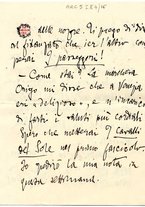 delle nozze. Ti prego di dir
al fidanzato che, ier l'altro com-
perai "I paraggni"!
— Come stai? La marchesa
Origo mi disse che a Venezia
eri "delizioso", e t'incaricò
di farti i saluti più cordiali.
Spero che metterai "I Cavalli
del Sole" nel primo fascicolo.
Io spedirò la mia nota in
questa settimana.